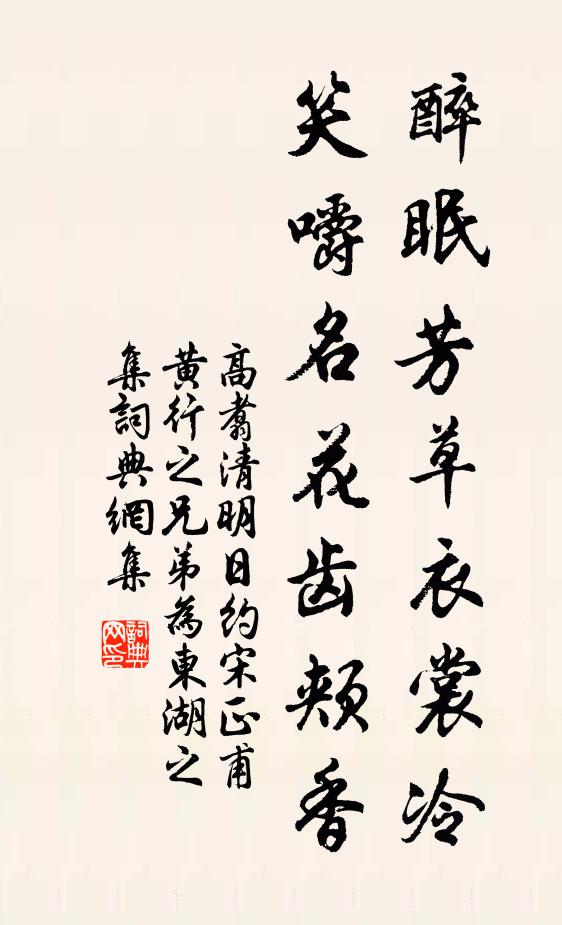 醉眠芳草衣裳冷
笑嚼名花齿頰香
高翥清明日約宋正甫
黄行之兄弟為東湖之
集詞典網集
詞典
网印